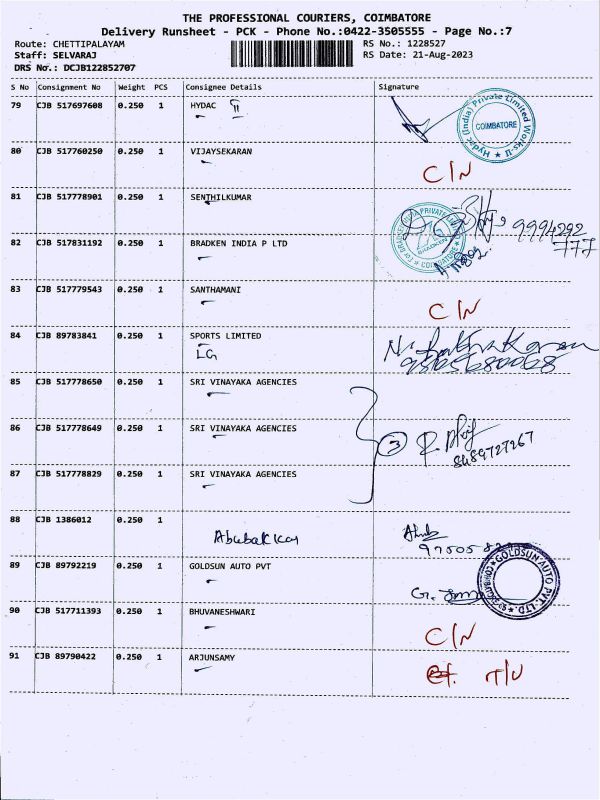 THE PROFESSIONAL COURIERS, COIMBATORE
Delivery Runsheet - PCK - Phone No.:0422-3505555 - Page No.:7
Route: CHETTIPALAYAM RS No.: 1228527
Staff: SELVARAJ RS Date: 21-Aug-2023
DRS No.: DCJB122852707
S No Consignment No Weight PCS Consignee Details Signature
79 CJB 517697608 0.250 1 HYDAC II
Hydac (India) Private Limited Works-II COIMBATORE
80 CJB 517760250 0.250 1 VIJAYSEKARAN C/N
81 CJB 517778901 0.250 1 SENTHILKUMAR 9994292
777
82 CJB 517831192 0.250 1 BRADKEN INDIA P LTD
For BRADKEN INDIA PRIVATE BRADKEN COIMBATORE
83 CJB 517779543 0.250 1 SANTHAMANI C/N
84 CJB 89783841 0.250 1 SPORTS LIMITED
LG
85 CJB 517778650 0.250 1 SRI VINAYAKA AGENCIES
86 CJB 517778649 0.250 1 SRI VINAYAKA AGENCIES 3
8489727267
87 CJB 517778829 0.250 1 SRI VINAYAKA AGENCIES
88 CJB 1386012 0.250 1
Abubakkar
89 CJB 89792219 0.250 1 GOLDSUN AUTO PVT
GOLDSUN AUTO PVT. LTD. COIMBATORE
90 CJB 517711393 0.250 1 BHUVANESHWARI C/N
91 CJB 89790422 0.250 1 ARJUNSAMY T/U